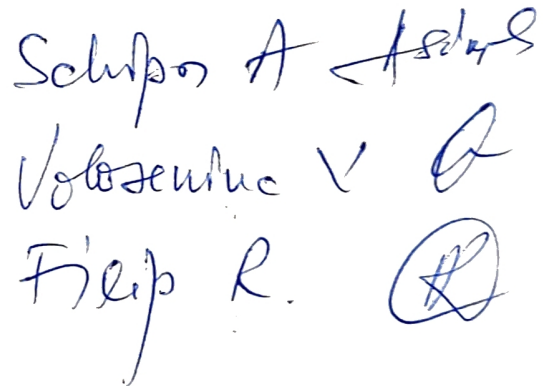 Schipor A
Voloseniuc V
Filip R.